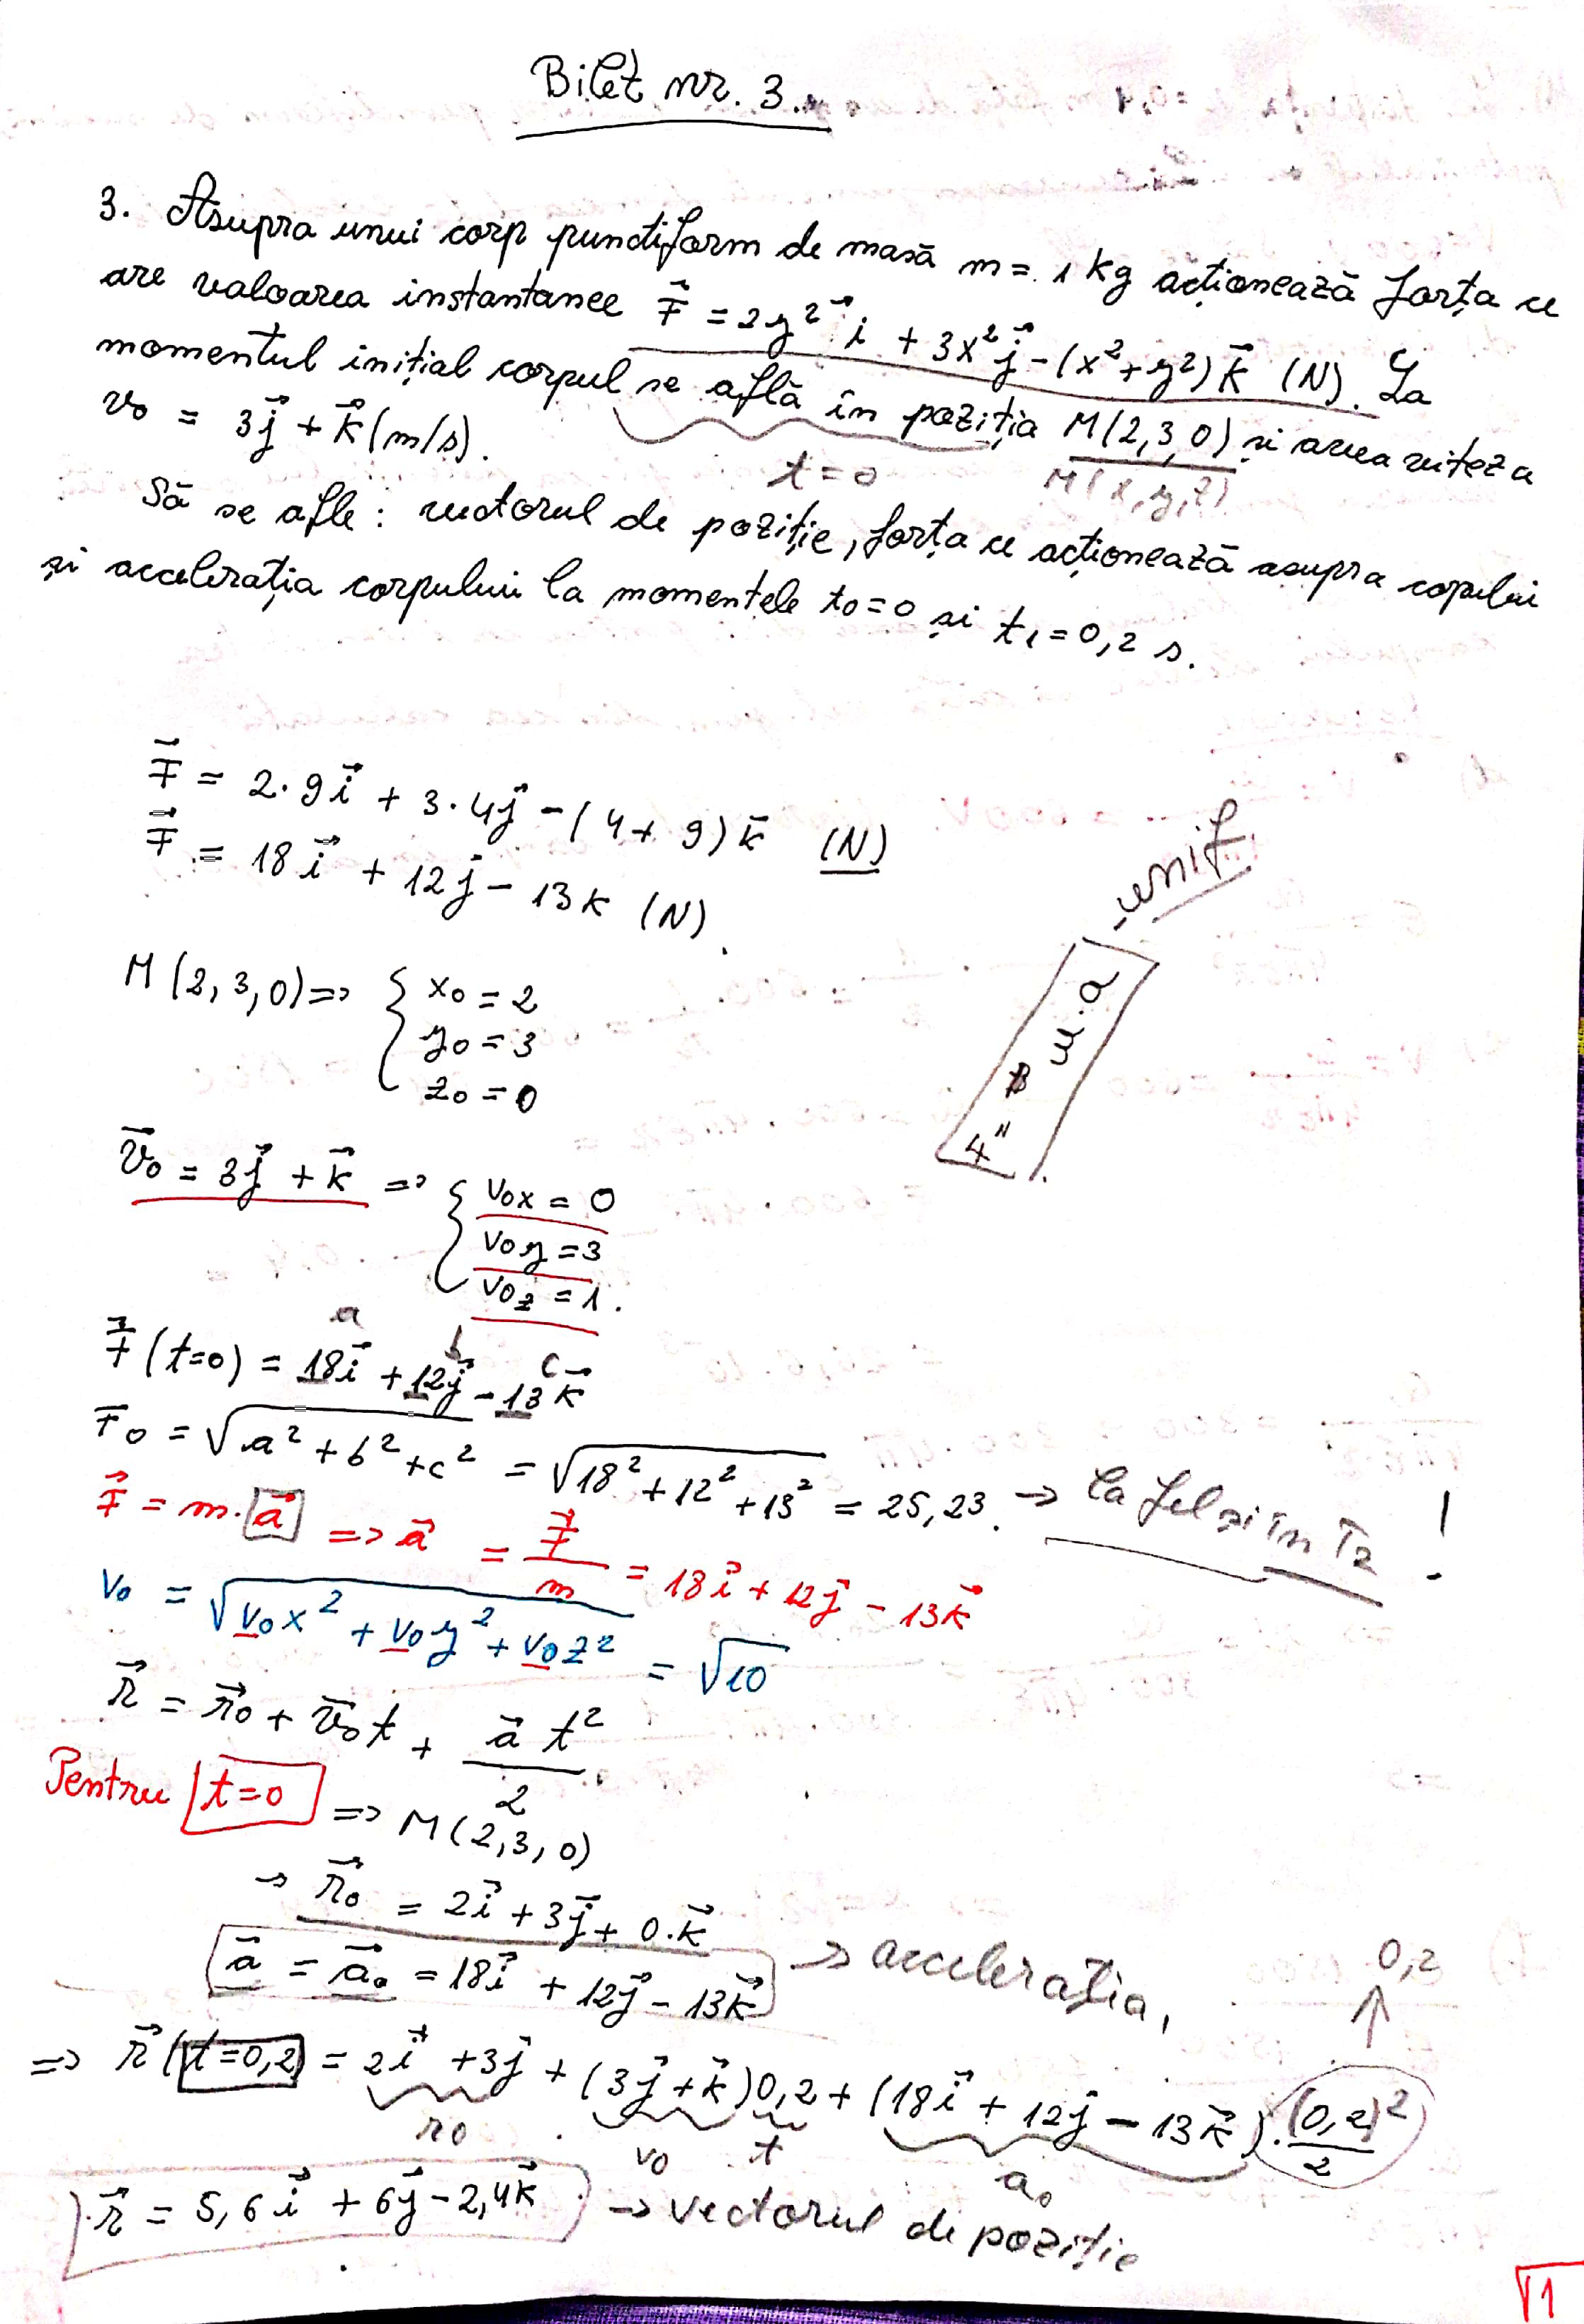 Bilet nr. 3.
3. Asupra unui corp punctiform de masă m = 1 kg acționează forța ce
are valoarea instantanee F⃗ = 2y² i⃗ + 3x² j⃗ - (x² + y²) k⃗ (N). La
momentul inițial corpul se află în poziția M(2,3,0) și avea viteza
v₀ = 3j⃗ + k⃗ (m/s).
t = 0
M(x,y,z)
Să se afle: vectorul de poziție, forța ce acționează asupra copului
și accelerația corpului la momentele t₀ = 0 și t₁ = 0,2 s.
F⃗ = 2·9i⃗ + 3·4j⃗ - (4 + 9) k⃗ (N)
F⃗ = 18i⃗ + 12j⃗ - 13k (N).
unif
M(2,3,0) => { x₀ = 2
y₀ = 3
z₀ = 0
v⃗₀ = 3j⃗ + k⃗ => { v₀x = 0
v₀y = 3
v₀z = 1.
a b c
F⃗ (t=0) = 18i⃗ + 12j⃗ - 13k⃗
F₀ = √(a² + b² + c²) = √(18² + 12² + 13²) = 25,23. → la fel și în T₂ !
F⃗ = m·a⃗ => a⃗ = F⃗/m = 18i⃗ + 12j⃗ - 13k⃗
v₀ = √(v₀x² + v₀y² + v₀z²) = √10
r⃗ = r⃗₀ + v⃗₀t + a⃗ t²/2
Pentru t=0 => M(2,3,0)
→ r⃗₀ = 2i⃗ + 3j⃗ + 0·k⃗
a⃗ = a⃗₀ = 18i⃗ + 12j⃗ - 13k⃗ → accelerația,
0,2
=> r⃗ (t=0,2) = 2i⃗ + 3j⃗ + (3j⃗ + k⃗)0,2 + (18i⃗ + 12j⃗ - 13k⃗)·(0,2)²/2
r₀ v₀ t a₀
r⃗ = 5,6i⃗ + 6j⃗ - 2,4k⃗ → vectorul de poziție
1